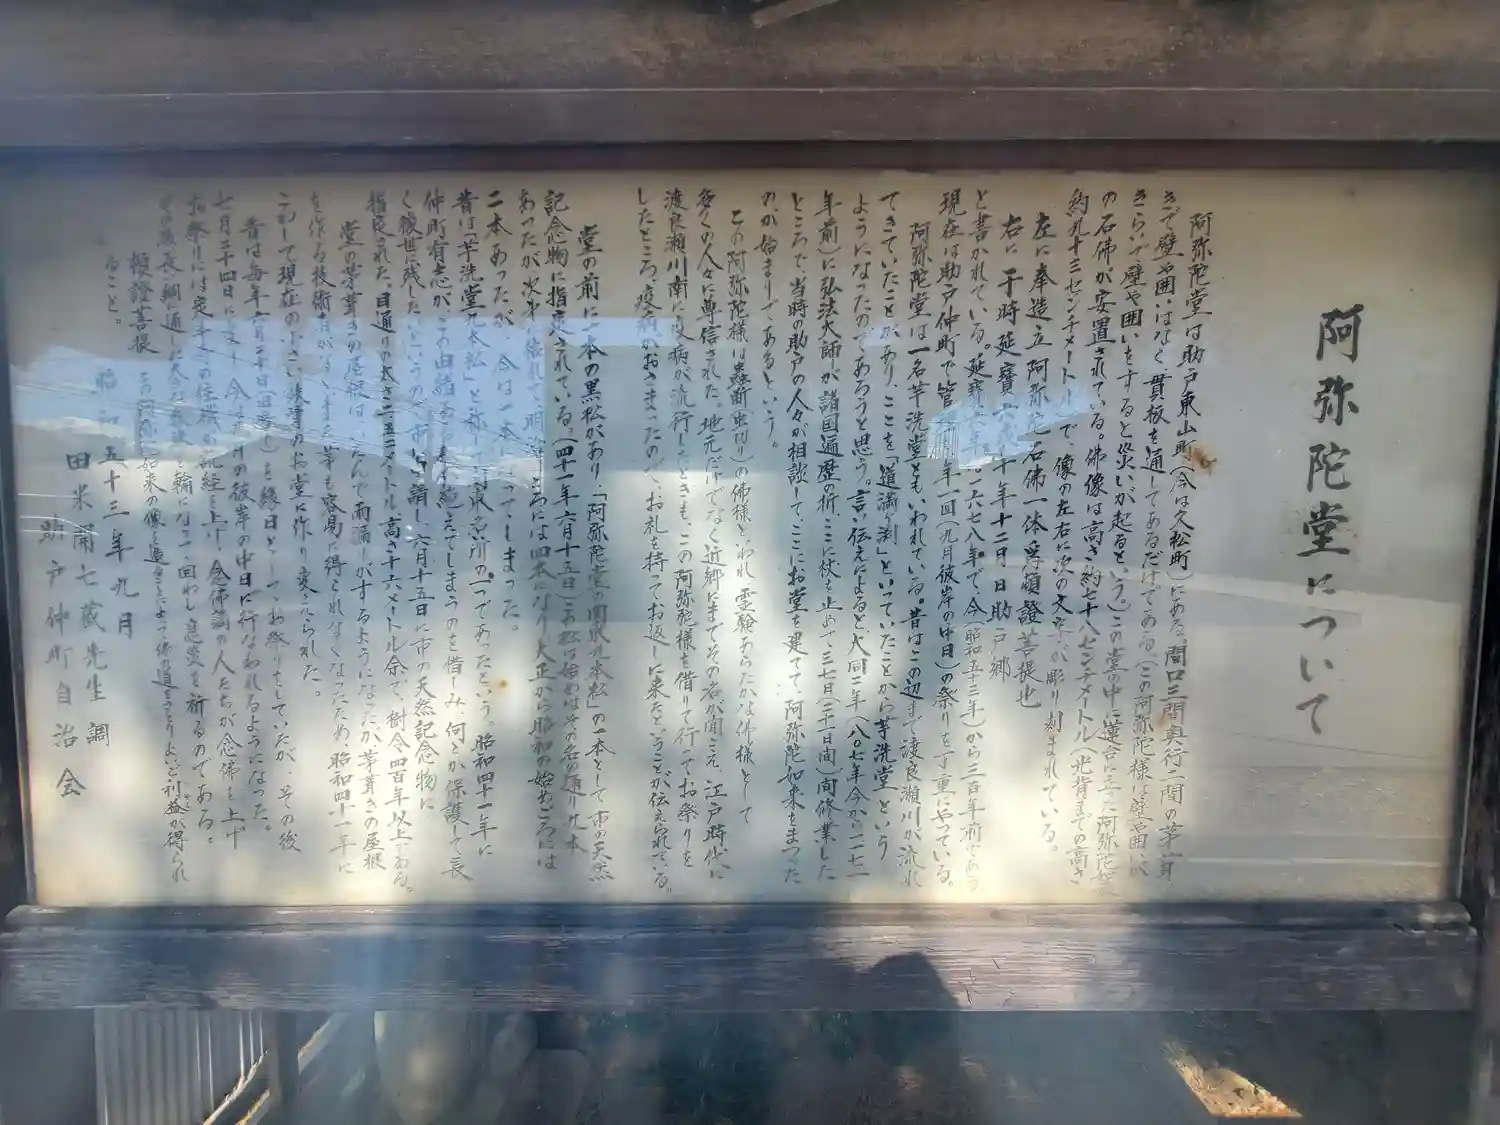 阿弥陀堂について
阿弥陀堂は助戸東山町(今は久松町)にある、間口三間奥行二間の茅葺
きで壁や囲いはなく、貫板を通してあるだけである。(この阿弥陀様は壁や囲いが
きらいで、壁や囲いをすると災いが起るという)この堂の中に蓮台に立つ阿弥陀様
の石佛が安置されている。佛像は高さ約七十八センチメートル(光背までの高さ
約九十三センチメートル)で、像の左右に次の文字が彫り刻まれている。
左に 奉造立阿弥陀石佛一体 為頓證菩提也
右に 干時延寶 年十二日 助戸郷
と書かれている。延寶 年は一六七八年で、今(昭和五十三年)から三百年前である。
現在は助戸仲町で管 年一回(九月彼岸の中日)の祭りを丁重にやっている。
阿弥陀堂は一名芋洗堂ともいわれている。昔はこの辺まで渡良瀬川が流れ
てきていたことがあり、ここを「道満ヶ渕」といっていたことから芋洗堂という
ようになったのであろうと思う。言い伝えによると、大同二年(八〇七年今から一一七一
年前)に弘法大師が諸国遍歴の折、ここに杖を止めて、三七日(二十一日間)間修業した
ところで、当時の助戸の人々が相談して、ここにお堂を建てて、阿弥陀如来をまつった
のが始まりであるという。
この阿弥陀様は蟲断(虫切り)の佛様といわれ 霊験あらたかな佛様として
多くの人々に尊信された。地元だけでなく近郷にまでその名が聞こえ、江戸時代に
渡良瀬川南に疫病が流行したときも、この阿弥陀様を借りて行ってお祭りを
したところ、疫病がおさまったので、お札を持ってお返しに来たということが伝えられている。
堂の前に一本の黒松があり、「阿弥陀堂の関東九本松」の一本として市の天然
記念物に指定されている。(四十一年六月十五日)この松は始めはその名の通り九本
あったが、次第に枯れて、明治ごろには四本になり、大正から昭和の始めごろには
二本あったが、今は一本になってしまった。
昔は「芋洗堂九本松」と称し 関東 カ所の一つであったという。昭和四十一年に
仲町有志が、この由緒ある 絶えてしまうのを惜しみ、何とか保護して長
く後世に残したいというので、市に申請し、六月十五日に市の天然記念物に
指定された。目通りの太さ二・五二メートル高さ十六メートル余で、樹令四百年以上である。
堂の茅葺きの屋根は、いたんで雨漏りがするようになったが、茅葺きの屋根
を作る技術者がなく、また茅も容易に得られなくなったため、昭和四十一年に
こわして現在の 鉄骨のお堂に作り変えられた。
昔は毎年六月二十日(旦し)を縁日と って、お祭りをしていたが、その後
七月二十四日になり、今は九月の彼岸の中日に行なわれるようになった。
お祭りには定年寺の住職が読経を上げ、念佛講の人たちが念佛を上げ
その後長い綱を通した大きな数珠を輪になって回わし、息災を祈るのである。
頓證菩提 この阿弥陀如来の像を造ることによって佛の道をさとりよいご利益が得られ
ること。
昭和五十三年九月
田米開七蔵先生調
助戸仲町自治会